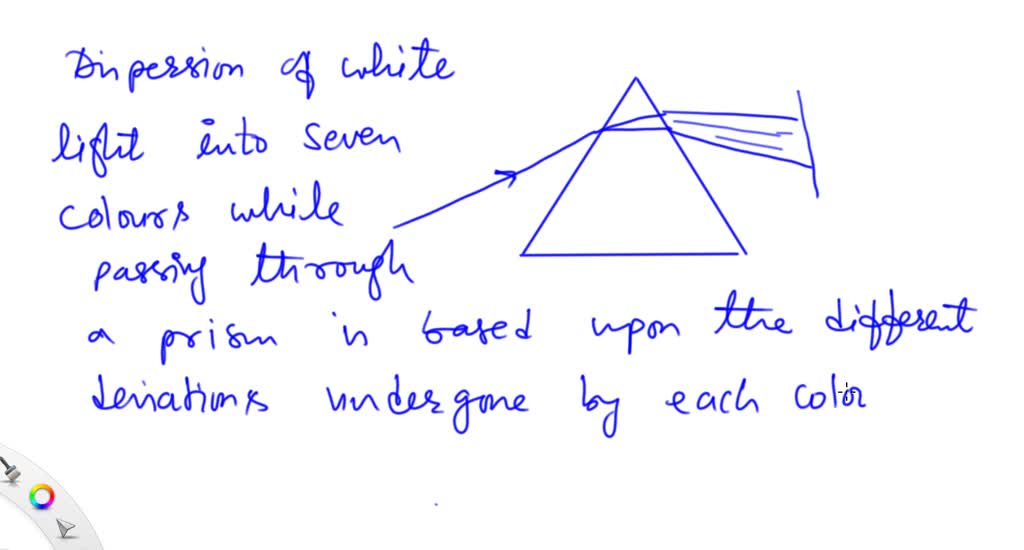 Dispersion of white
light into seven
colours while
passing through
a prism is based upon the different
deviations undergone by each color